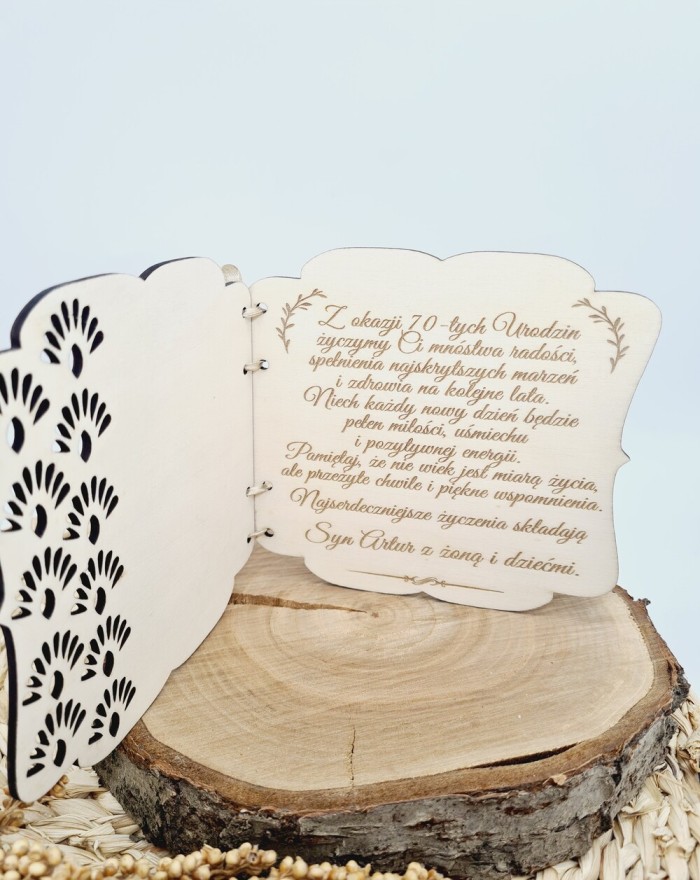 Z okazji 70-tych Urodzin
życzymy Ci mnóstwa radości,
spełnienia najskrytszych marzeń
i zdrowia na kolejne lata.
Niech każdy nowy dzień będzie
pełen miłości, uśmiechu
i pozytywnej energii.
Pamiętaj, że nie wiek jest miarą życia,
ale przeżyte chwile i piękne wspomnienia.
Najserdeczniejsze życzenia składają
Syn Artur z żoną i dziećmi.